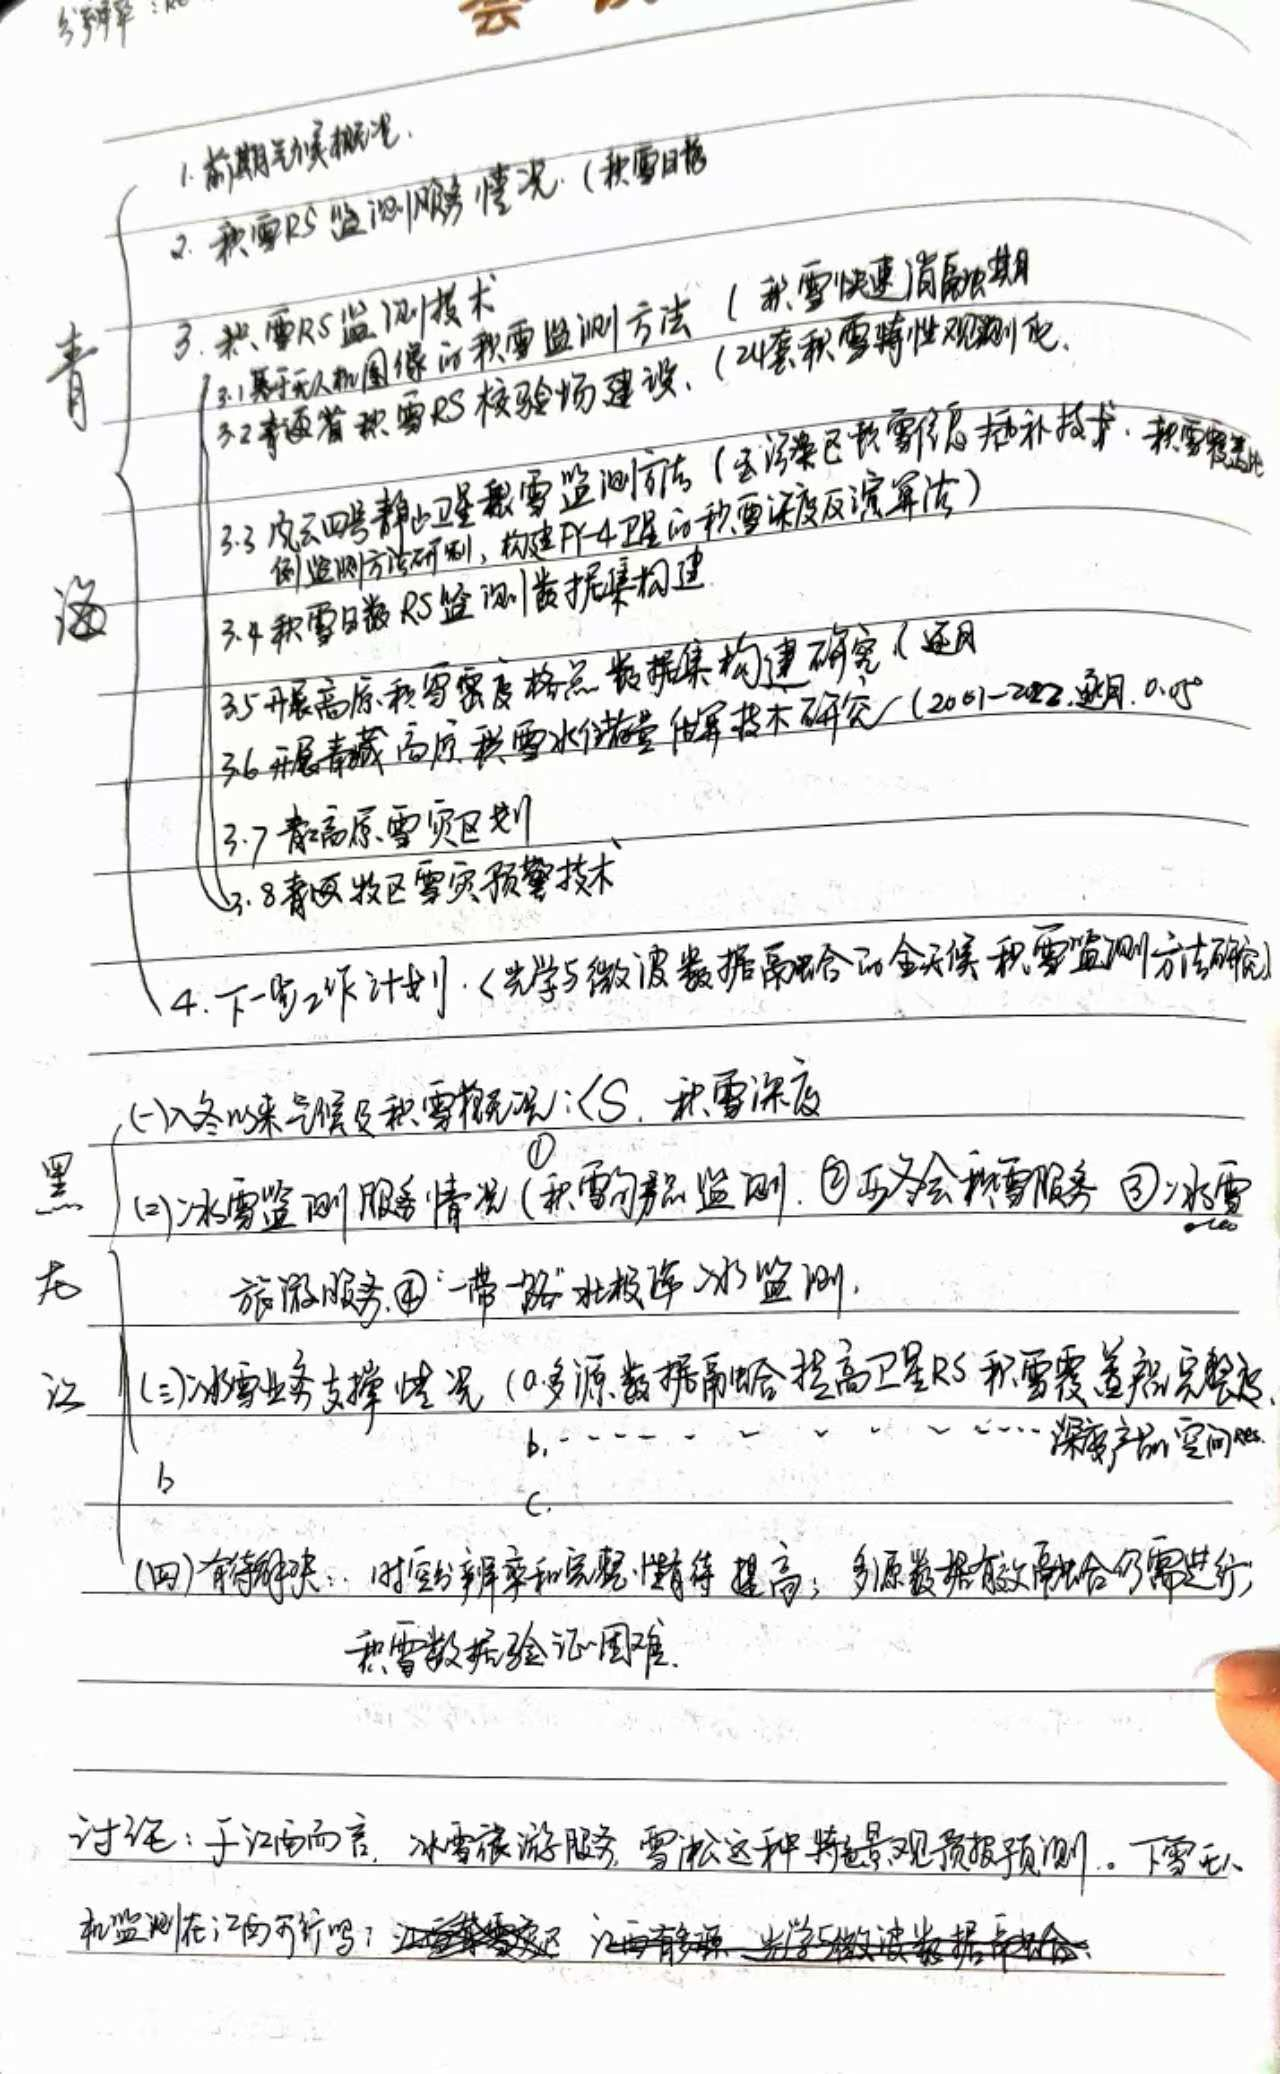 分辨率:
会
1. 前期气候概况.
2. 积雪RS监测服务情况.(积雪日报
3. 积雪RS监测技术
3.1 基于无人机图像的积雪监测方法 (积雪快速消融期
3.2 青海省积雪RS校验场建设.(24套积雪特性观测仪.
3.3 风云四号静止卫星积雪监测方法(云污染区积雪信息插补技术.积雪覆盖比
例监测方法研制,构建FY-4卫星的积雪深度反演算法)
3.4 积雪日数RS监测数据集构建
3.5 开展高原积雪密度格点数据集构建研究(逐月
3.6 开展青藏高原积雪水储量估算技术研究(2001-2022.逐月.0.05°
3.7 青高原雪灾区划
3.8 青海牧区雪灾预警技术
4. 下一步工作计划.<光学与微波数据融合的全天候积雪监测方法研究>
青海
(一)入冬以来气候及积雪概况:<S. 积雪深度
(二)冰雪监测服务情况(①积雪产品监测.②亚冬会积雪服务 ③冰雪
旅游服务.④"一带一路"北极海冰监测.
(三)冰雪业务支撑情况(a.多源数据融合提高卫星RS积雪覆盖产品完整度.
b. 深度产品空间res.
b
c.
(四)有待解决:.时空分辨率和完整性有待提高;多源数据有效融合仍需进行;
积雪数据验证困难.
黑龙江
讨论:于江西而言,冰雪旅游服务,雪淞这种特色景观预报预测.。下雪无人
机监测在江西可行吗?